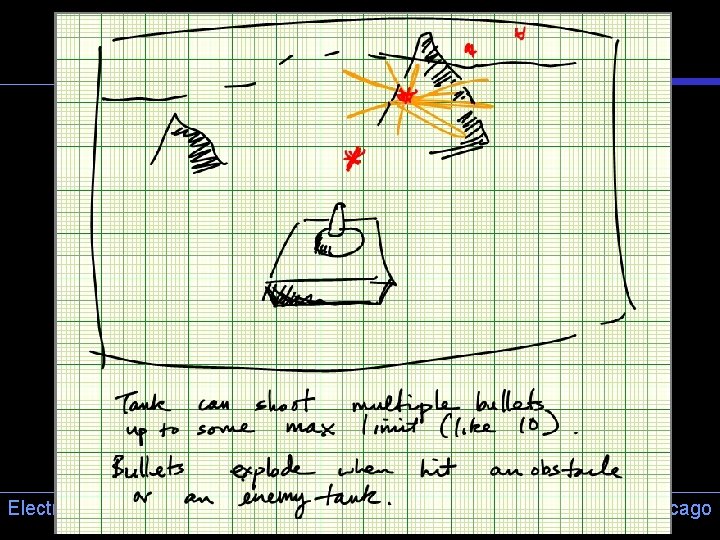 Tank can shoot multiple bullets
up to some max limit (like 10).
Bullets explode when hit an obstacle
or an enemy tank.
Electr
cago